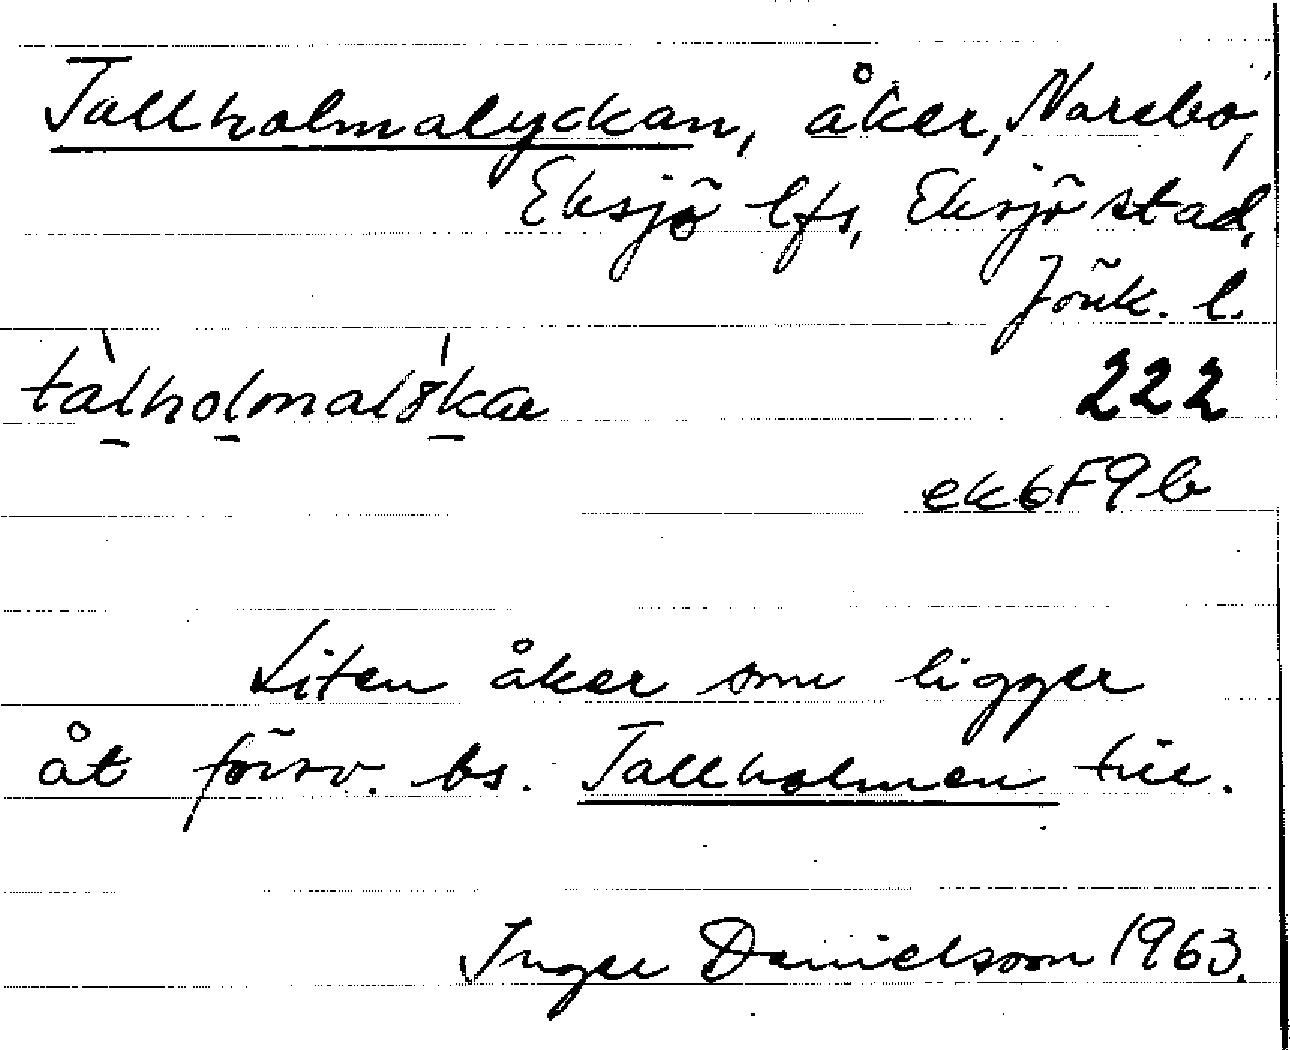 Tallholmalyckan, åker, Narebo,
Eksjö lfs, Eksjö stad,
Jönk. l.
tàlholmaløka 222
ek6F9b
Liten åker som ligger
åt försv. bs. Tallholmen till.
Inger Danielsson 1963.